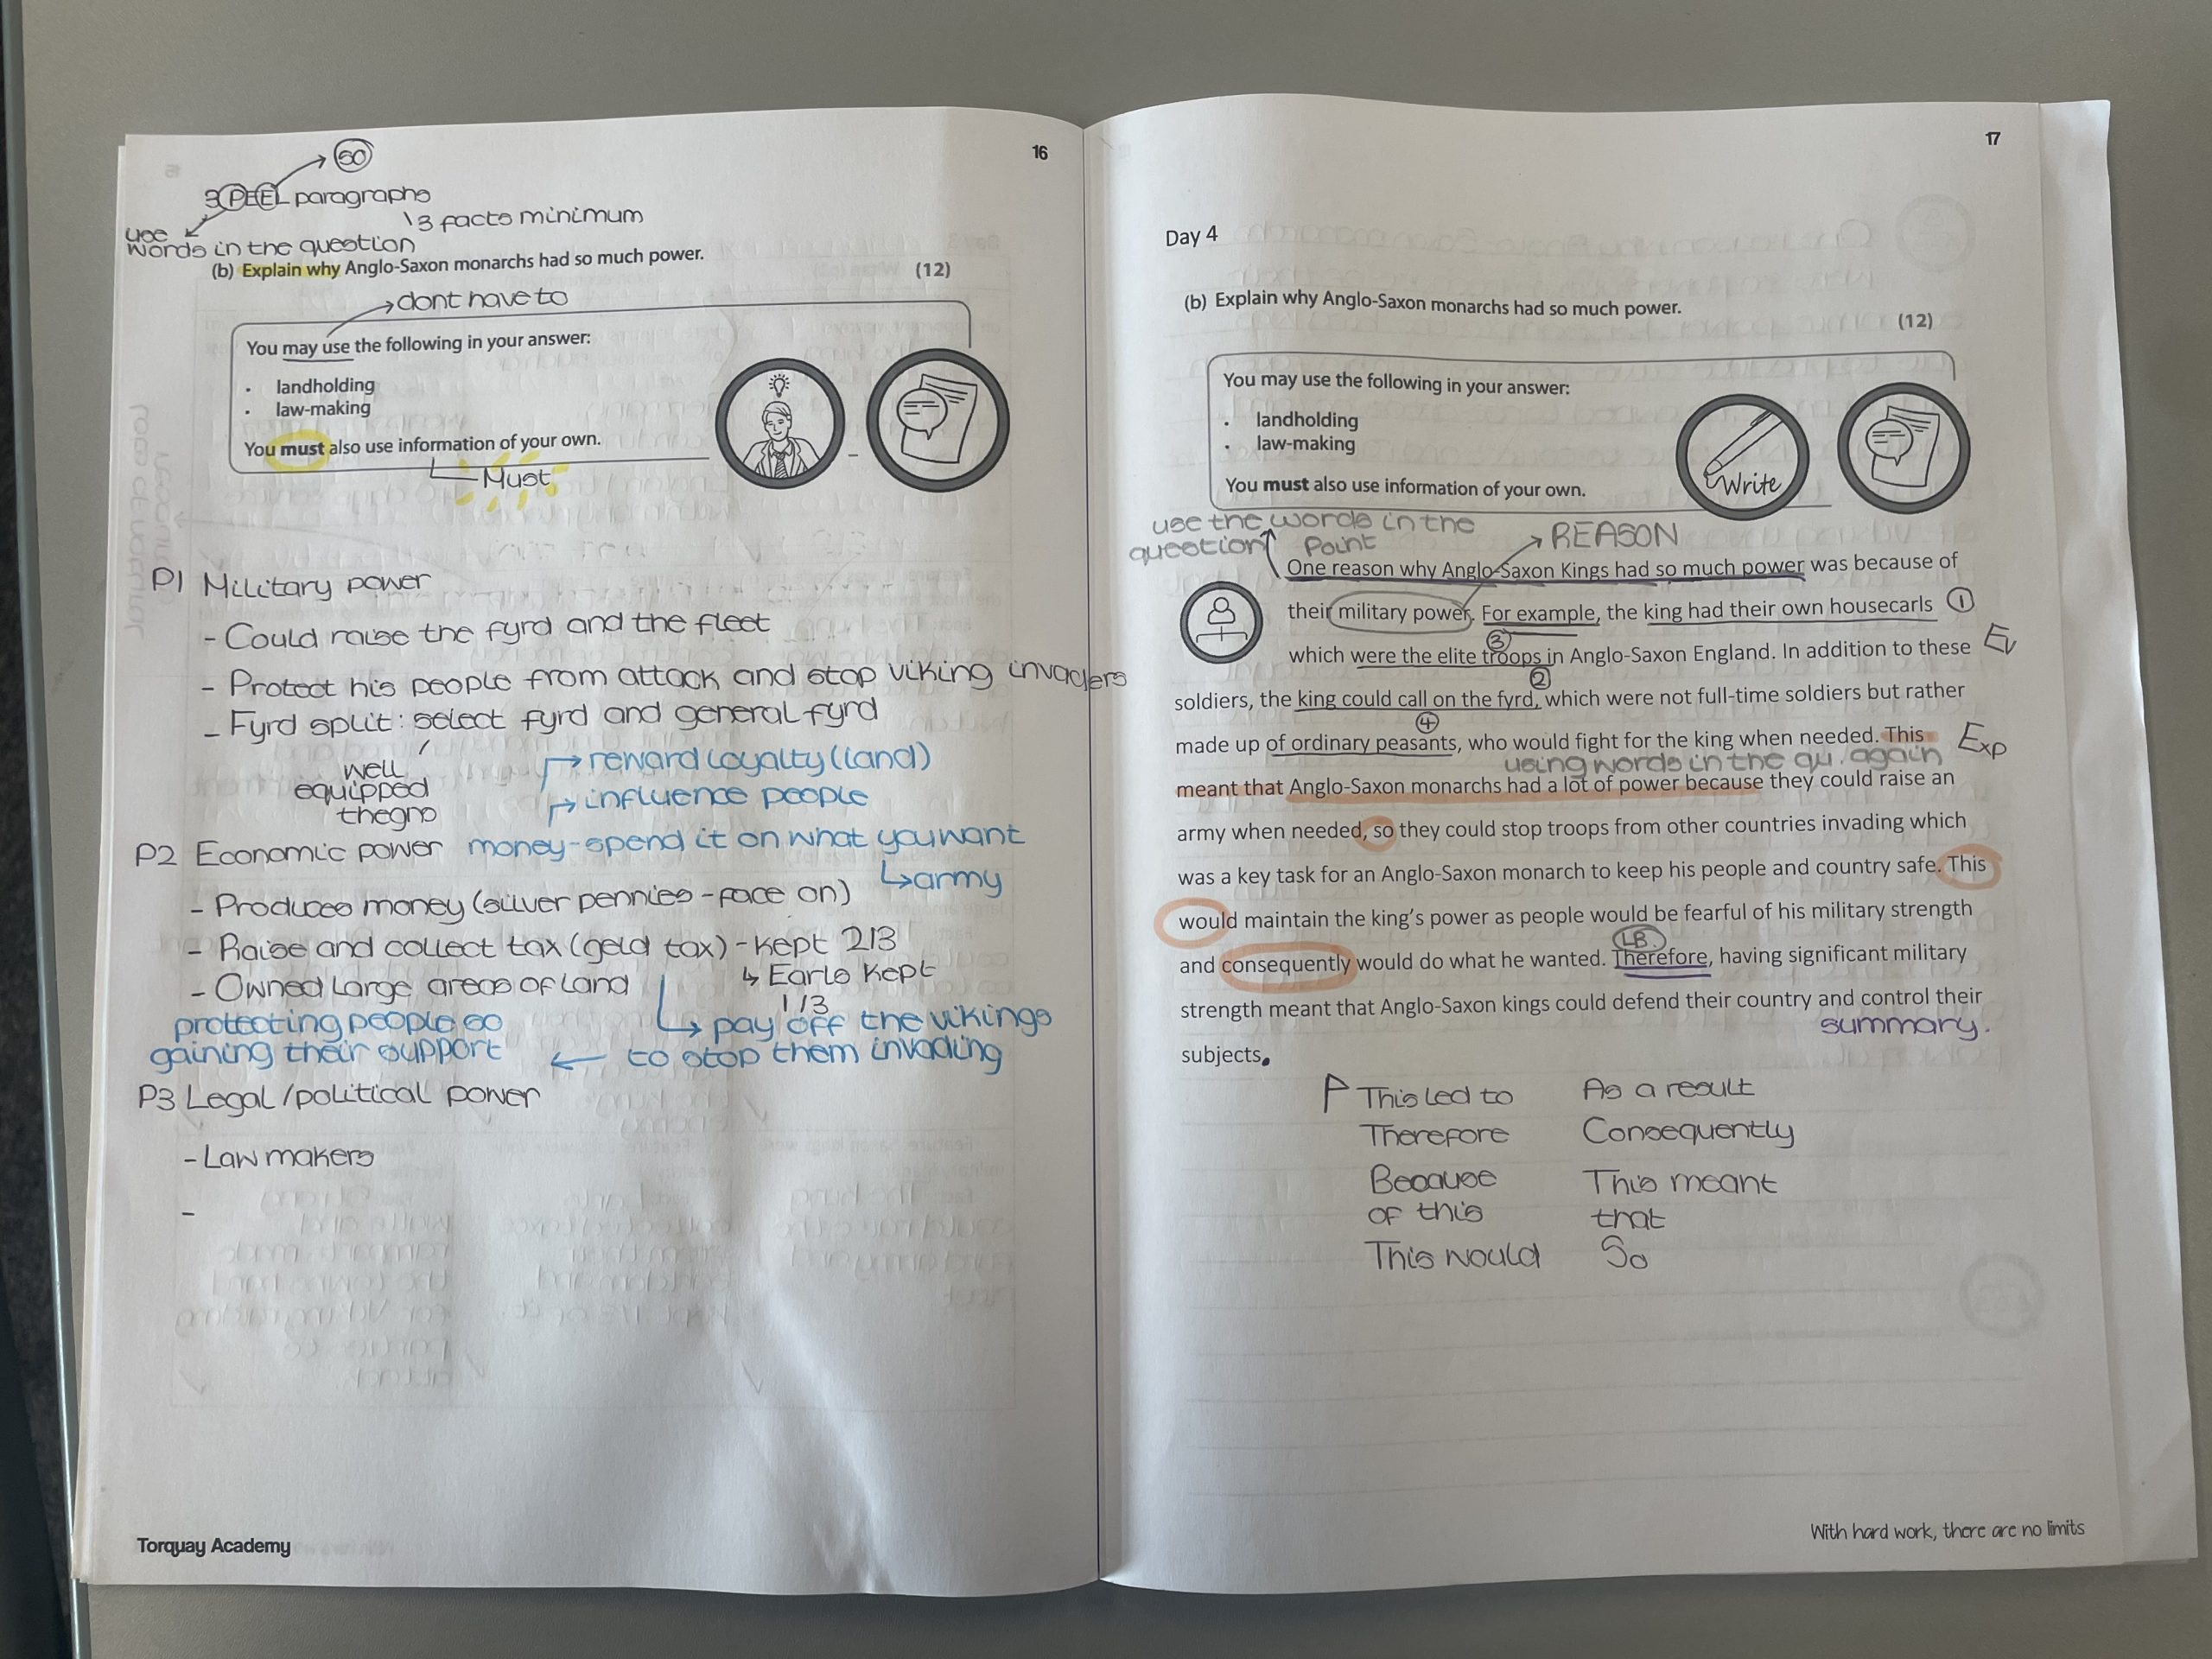 16
so
3 PEEL paragraphs
3 facts minimum
use
words in the question
(b) Explain why Anglo-Saxon monarchs had so much power.
(12)
dont have to
You may use the following in your answer:
• landholding
• law-making
You must also use information of your own.
Must
P1 Military power
- Could raise the fyrd and the fleet
- Protect his people from attack and stop viking invaders
- Fyrd split: select fyrd and general fyrd
well
equipped
thegns
reward loyalty (land)
influence people
P2 Economic power money-spend it on what you want
army
- Produces money (silver pennies - face on)
- Raise and collect tax (geld tax) - kept 2/3
Earls kept
1/3
- Owned large areas of land
protecting people so
gaining their support
pay off the vikings
to stop them invading
P3 Legal/political power
- Law makers
-
Torquay Academy
17
Day 4
(b) Explain why Anglo-Saxon monarchs had so much power.
(12)
You may use the following in your answer:
• landholding
• law-making
You must also use information of your own.
Write
use the words in the
question
Point
REASON
One reason why Anglo-Saxon Kings had so much power was because of
their military power. For example, the king had their own housecarls 1
3
which were the elite troops in Anglo-Saxon England. In addition to these Ev
2
soldiers, the king could call on the fyrd, which were not full-time soldiers but rather
4
made up of ordinary peasants, who would fight for the king when needed. This Exp
using words in the qu. again
meant that Anglo-Saxon monarchs had a lot of power because they could raise an
army when needed, so they could stop troops from other countries invading which
was a key task for an Anglo-Saxon monarch to keep his people and country safe. This
would maintain the king's power as people would be fearful of his military strength
LB.
and consequently would do what he wanted. Therefore, having significant military
strength meant that Anglo-Saxon kings could defend their country and control their
summary.
subjects.
P This led to As a result
Therefore Consequently
Because This meant
of this that
This would So
With hard work, there are no limits